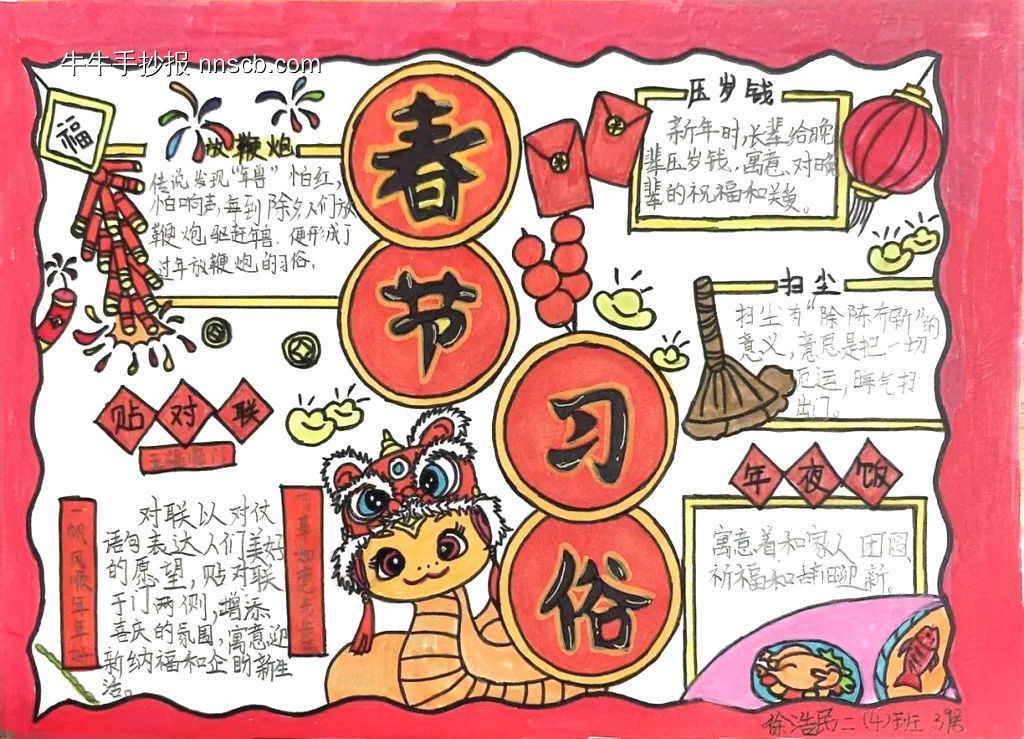 牛牛手抄报 nnscb.com
福
春节习俗
放鞭炮
传说发现"年兽"怕红,
怕响声,每到除夕人们放
鞭炮驱赶年兽,便形成了
过年放鞭炮的习俗.
压岁钱
新年时,长辈给晚
辈压岁钱,寓意对晚
辈的祝福和关爱。
扫尘
扫尘有"除陈布新"的
意义,意思是把一切
厄运,晦气扫
出门。
贴对联
五福临门
一帆风顺年年
万事如意
对联以对仗
语句表达人们美好
的愿望,贴对联
于门两侧,增添
喜庆的氛围,寓意迎
新纳福和企盼新生
活。
年夜饭
寓意着和家人团圆
祈福和辞旧迎新.
徐浩民二(4)班 39号